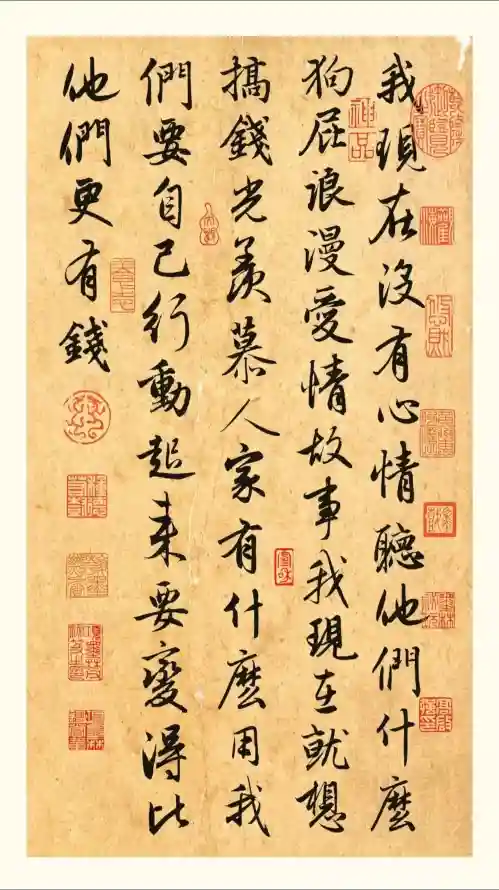 我現在沒有心情聽他們什麼
狗屁浪漫愛情故事我現在就想
搞錢光羨慕人家有什麼用我
們要自己行動起來要變得比
他們更有錢
神品